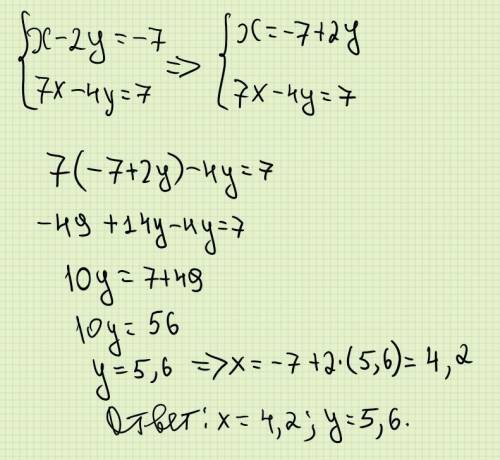 x-2y=-7 => x=-7+2y
7x-4y=7 7x-4y=7
7(-7+2y)-4y=7
-49+14y-4y=7
10y=7+49
10y=56
y=5,6 => x=-7+2·(5,6)=4,2
Ответ: x=4,2; y=5,6.